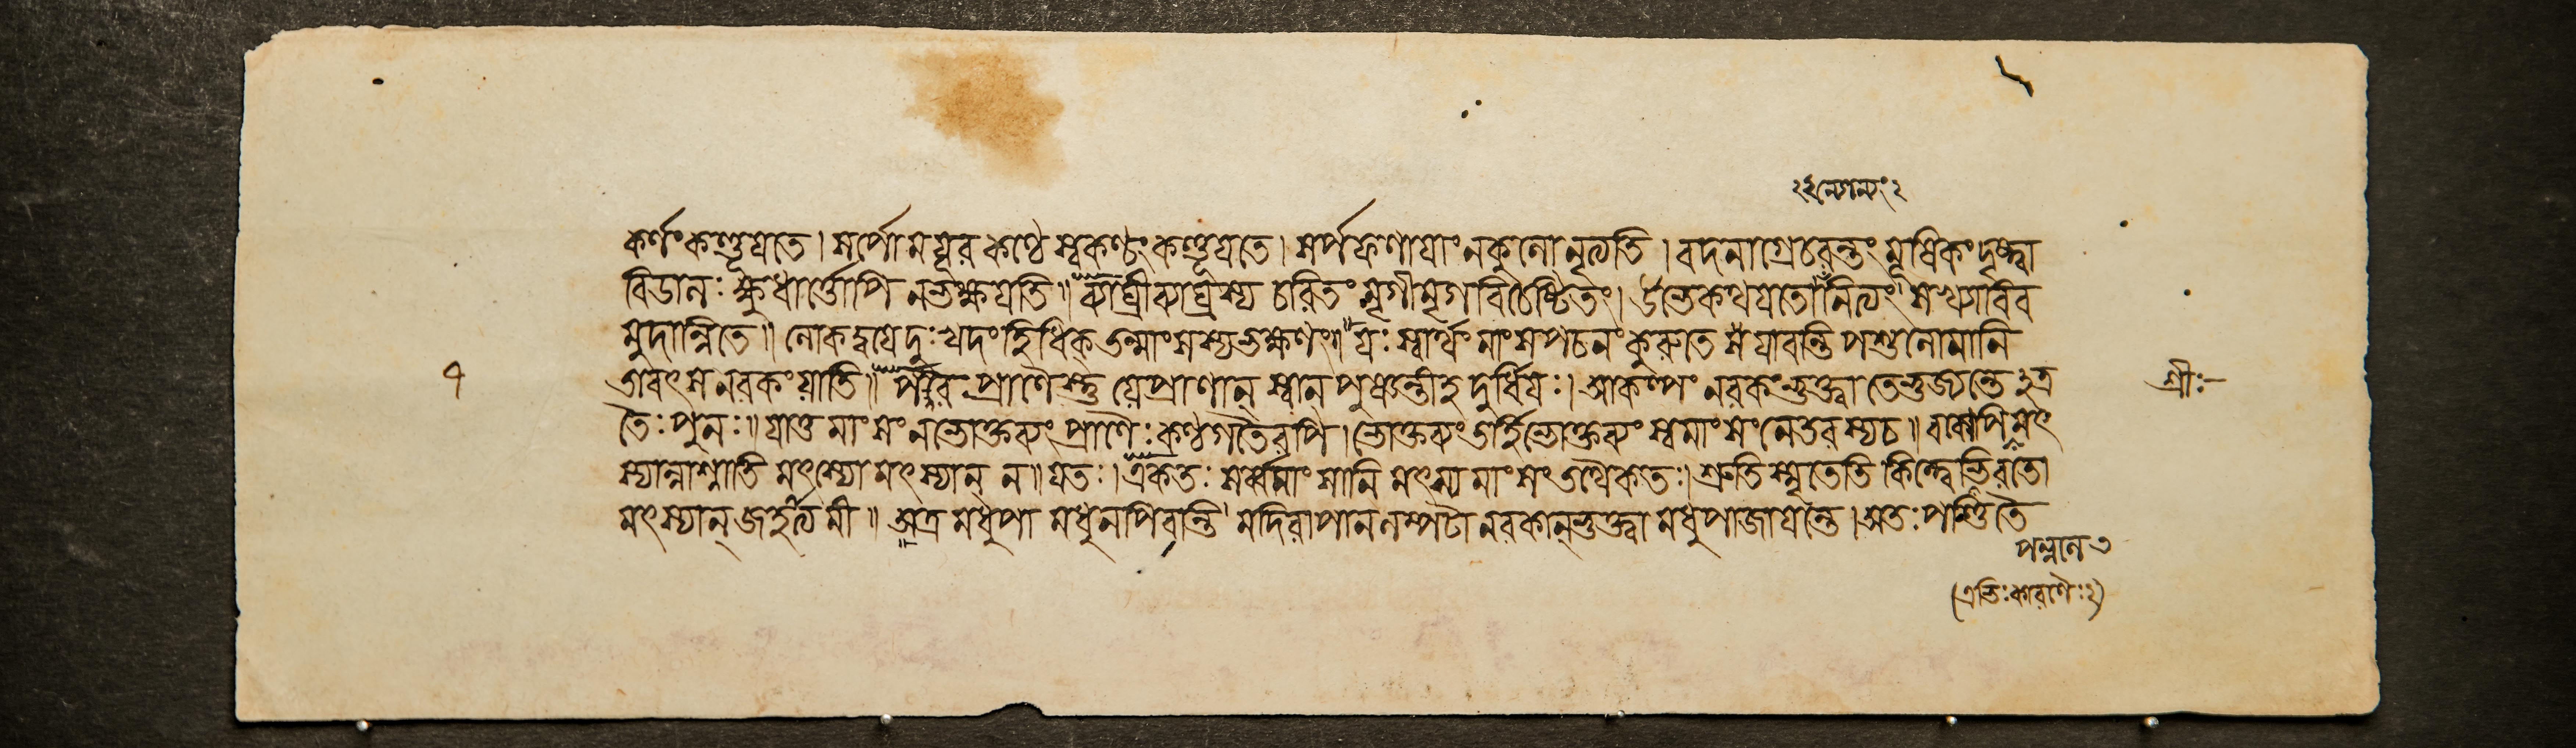 কর্ণং কণ্ডূযতে। সর্পো মযূর কণ্ঠে স্বকণ্ঠং কণ্ডূযতে। সর্পফণাযাং নকুলো নৃত্যতি। বদনাগ্রেচরন্তং মূষিকং দৃষ্ট্বা
বিডালঃ ক্ষুধার্ত্তোপি নভক্ষযতি॥ ব্যাঘ্রীব্যাঘ্রস্য চরিতং মৃগীমৃগবিচেষ্টিতং। উভেকথযতো নিত্যং সখ্যাবিব
মুদান্বিতে॥ লোকদ্বযেদুঃখদংহি ধিক্ তন্মাংসস্যভক্ষণং॥ যঃ স্বার্থং মাংসপচনং কুরুতে স যাবন্তি পশুলোমানি
৭
তাবৎ স নরকং যাতি॥ পর প্রাণৈস্তু যেপ্রাণান্ স্বান্ পুষ্ণন্তীহ দুর্ধিযঃ। আকল্পং নরকংভুক্ত্বা তেভুজ্যন্তে ঽত্র
শ্রীঃ—
তৈঃ পুনঃ॥ যাতু মাংসং নভোক্তব্যং প্রাণৈঃ কণ্ঠগতৈরপি। ভোক্তব্যং তর্হিভোক্তব্যং স্বমাংসং নেতরস্যচ॥ বকোপিমৎ
স্যান্নাশ্নাতি মৎস্যো মৎস্যান্ ন॥ যতঃ। একতঃ সর্ব্বমাংসানি মৎস্যমাংসং তথৈকতঃ। শ্রুতি স্মৃতেতি কিন্ত্বেভিরতো
মৎস্যান্ জহুর্ত্যমী॥ অত্র মধুপা মধুনপিবন্তি মদিরাপানলম্পটা নরকান্ভুক্ত্বা মধুপাজাযন্তে। অতঃ পণ্ডিতৈ
(এভিঃকারণৈঃ২)